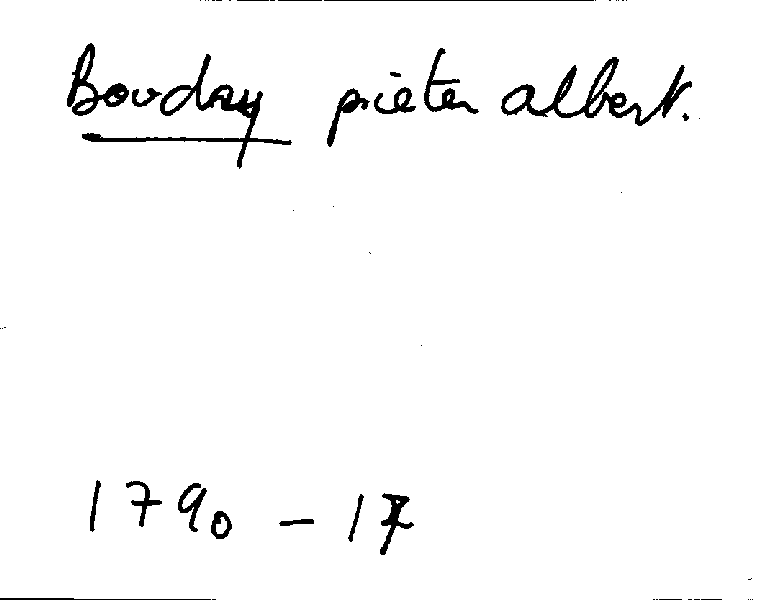 Boudry pieter albert.
1790 - 17